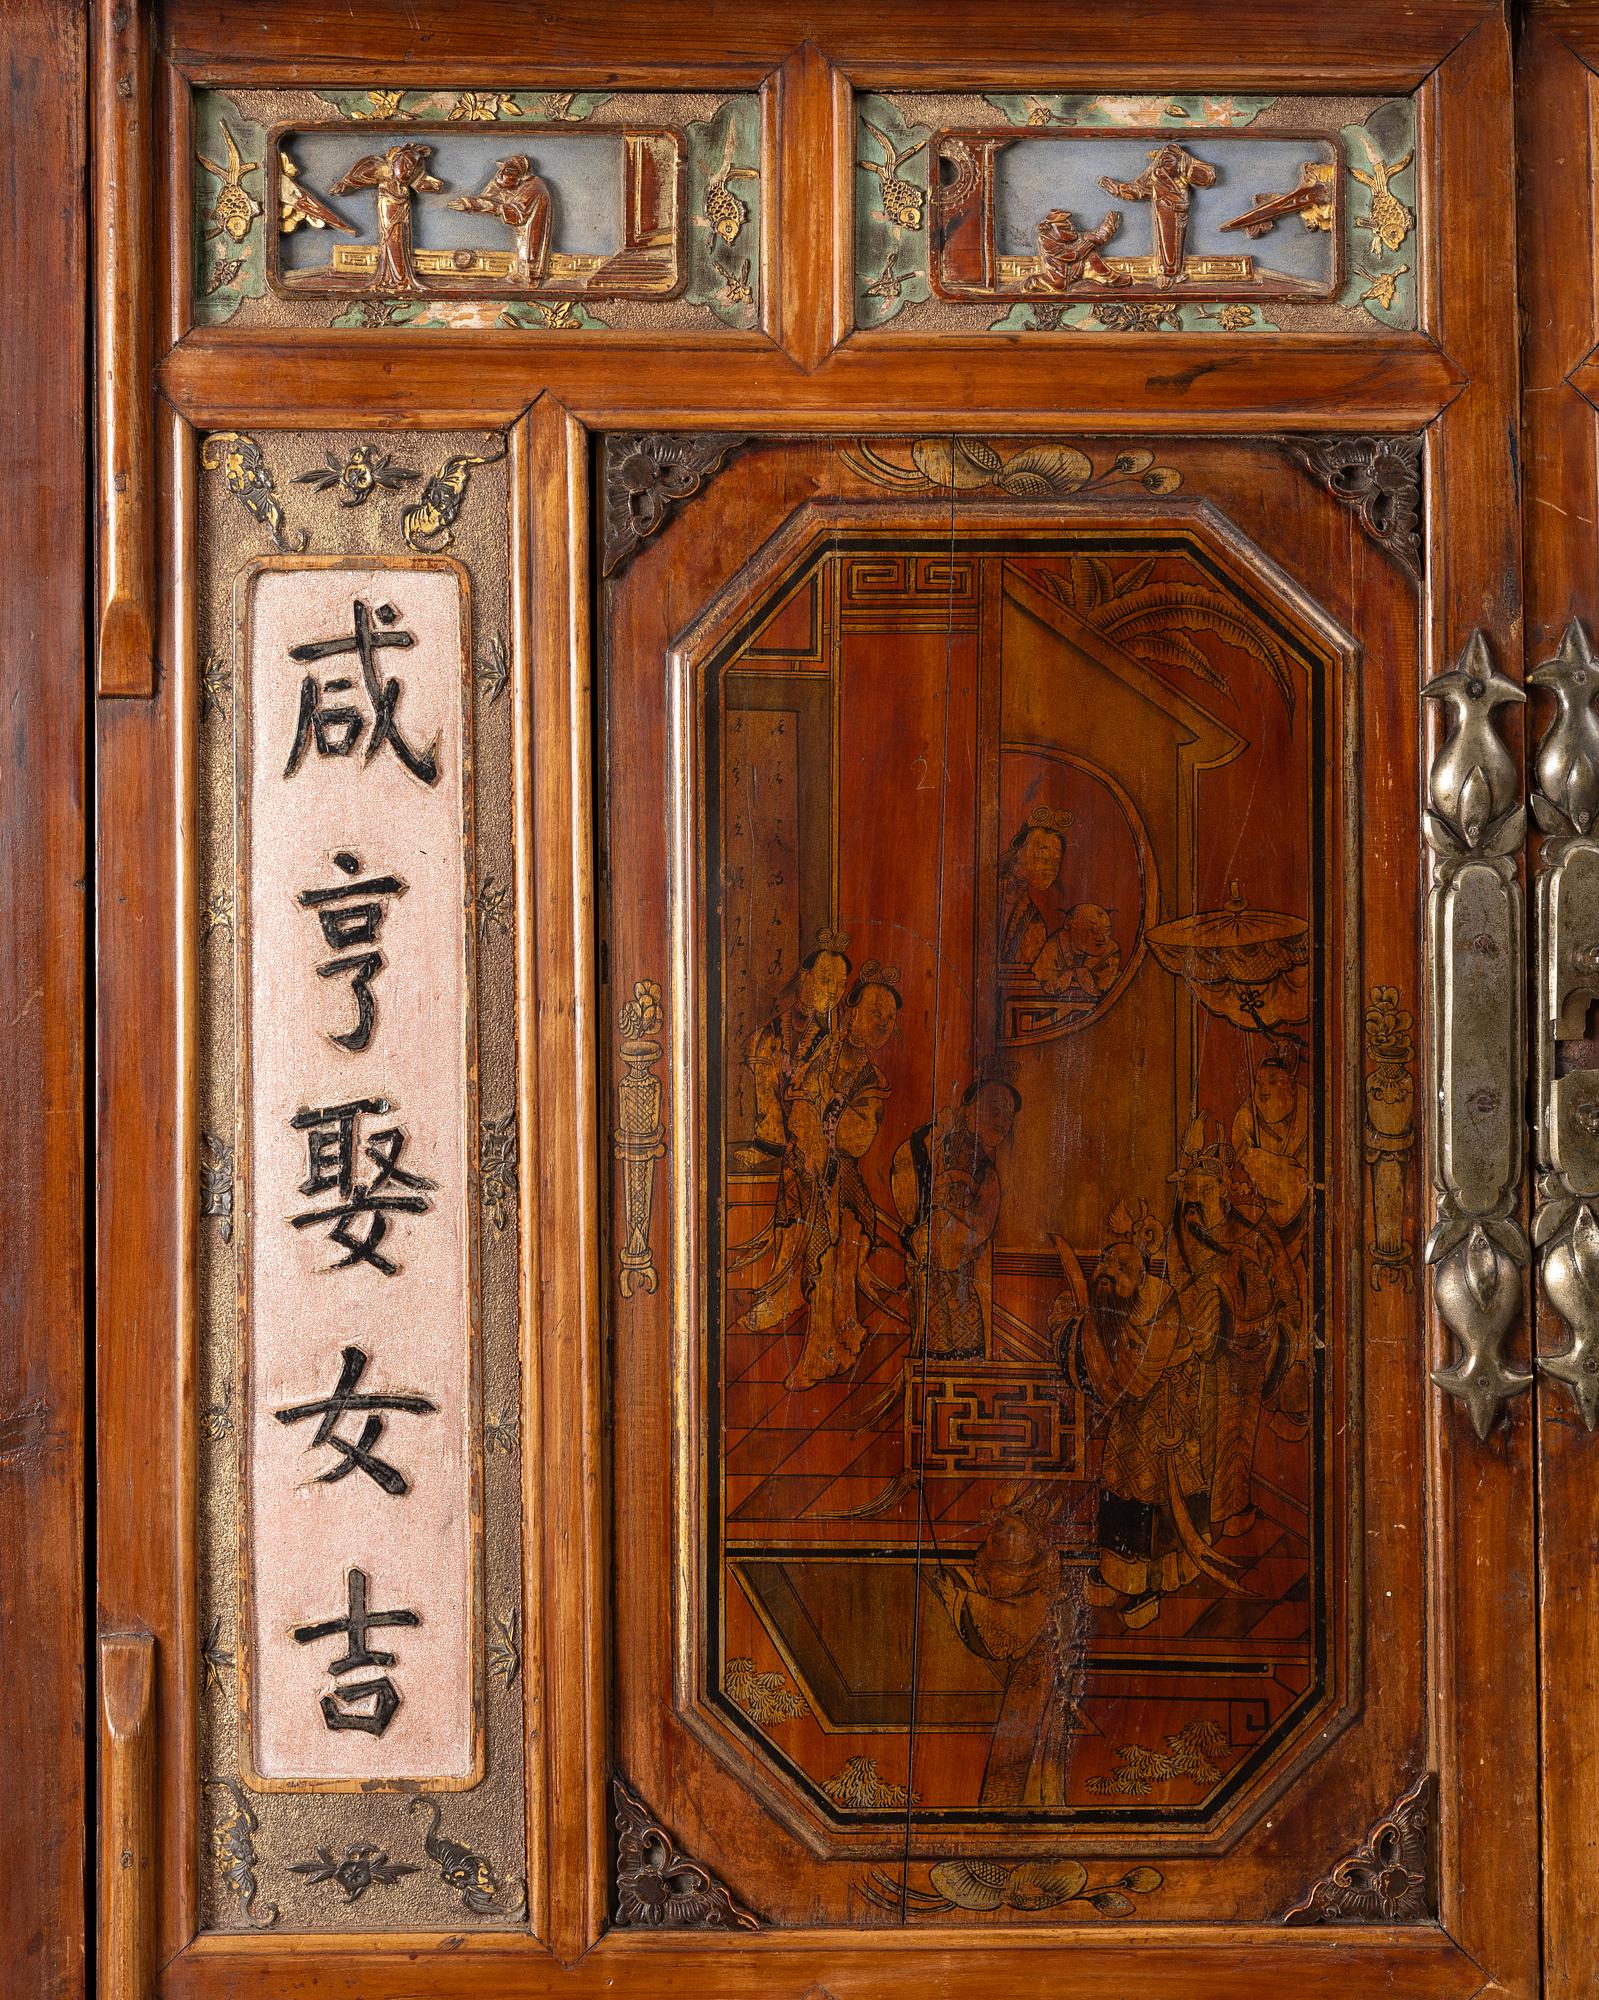 咸亨娶女吉